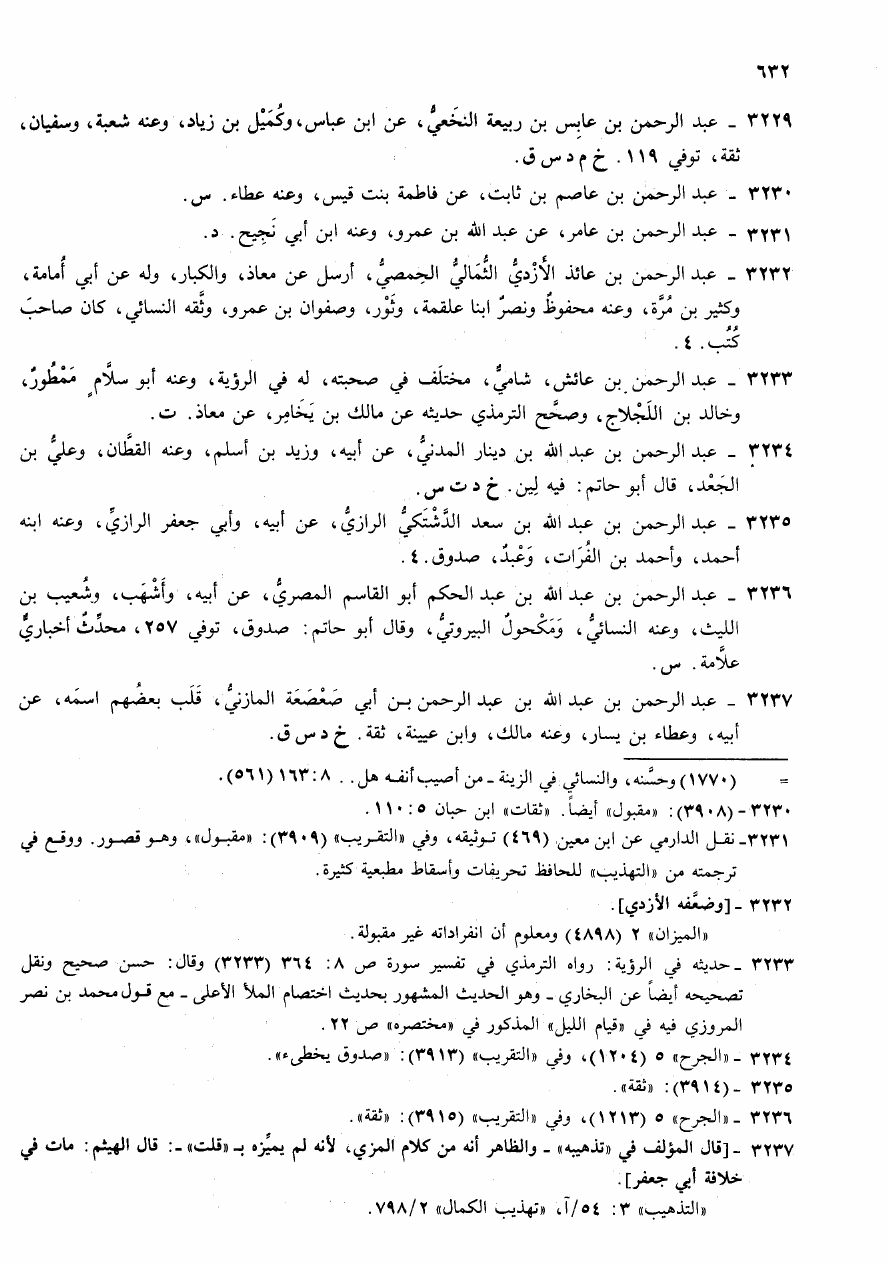 ٦٣٢
٣٢٢٩ ـ عبد الرحمن بن عابِس بن ربيعة النخَعيُّ، عن ابن عباس، وكُمَيْل بن زياد، وعنه شعبة، وسفيان،
ثقة، توفي ١١٩. خ م د س ق.
٣٢٣٠ ـ عبد الرحمن بن عاصم بن ثابت، عن فاطمة بنت قيس، وعنه عطاء. س.
٣٢٣١ ـ عبد الرحمن بن عامر، عن عبد الله بن عمرو، وعنه ابن أبي نَجِيح. د.
٣٢٣٢ ـ عبد الرحمن بن عائذ الأَزْديُّ الثُّمَاليُّ الحِمصيُّ، أرسل عن معاذ، والكبار، وله عن أبي أُمامة،
وكثير بن مُرَّة، وعنه محفوظٌ ونصرٌ ابنا علقمة، وثَوْر، وصفوان بن عمرو، وثَّقه النسائي، كان صاحبَ
كُتُب. ٤.
٣٢٣٣ ـ عبد الرحمن بن عائش، شاميٌّ، مختلَف في صحبته، له في الرؤية، وعنه أبو سلَّامٍ مَمْطُورٌ،
وخالد بن اللَّجْلاج، وصحَّح الترمذي حديثه عن مالك بن يَخَامِر، عن معاذ. ت.
٣٢٣٤ ـ عبد الرحمن بن عبد الله بن دينار المدنيُّ، عن أبيه، وزيد بن أسلم، وعنه القطَّان، وعليُّ بن
الجَعْد، قال أبو حاتم: فيه لِين. خ د ت س.
٣٢٣٥ ـ عبد الرحمن بن عبد الله بن سعد الدَّشْتَكيُّ الرازيُّ، عن أبيه، وأبي جعفر الرازيِّ، وعنه ابنه
أحمد، وأحمد بن الفُرَات، وَعْبدٌ، صدوق. ٤.
٣٢٣٦ ـ عبد الرحمن بن عبد الله بن عبد الحكم أبو القاسم المصريُّ، عن أبيه، وأَشْهَب، وشُعيب بن
الليث، وعنه النسائيُّ، وَمَكْحولٌ البيروتيُّ، وقال أبو حاتم: صدوق، توفي ٢٥٧، محدِّثٌ أخباريٌّ
علَّامة. س.
٣٢٣٧ ـ عبد الرحمن بن عبد الله بن عبد الرحمن بـن أبي صَعْصَعَة المازنيُّ، قَلَب بعضُهم اسمَه، عن
أبيه، وعطاء بن يسار، وعنه مالك، وابن عيينة، ثقة. خ د س ق.
= (١٧٧٠) وحسَّنه، والنسائي في الزينة ـ من أصيب أنفـه هل. . ١٦٣:٨ (٥٦١).
٣٢٣٠ ـ (٣٩٠٨): «مقبول» أيضاً. «ثقات» ابن حبان ٥: ١١٠.
٣٢٣١ ـ نقـل الدارمي عن ابن معين (٤٦٩) تـوثيقه، وفي «التقـريب» (٣٩٠٩): «مقبـول»، وهـو قصـور. ووقـع في
ترجمته من «التهذيب» للحافظ تحريفات وأسقاط مطبعية كثيرة.
٣٢٣٢ ـ [وضعَّفه الأزدي].
«الميزان» ٢ (٤٨٩٨) ومعلوم أن انفراداته غير مقبولة.
٣٢٣٣ ـ حديثه في الرؤية: رواه الترمذي في تفسير سورة ص ٨: ٣٦٤ (٣٢٣٣) وقال: حسن صحيح ونقل
تصحيحه أيضاً عن البخاري ـ وهو الحديث المشهور بحديث اختصام الملأ الأعلى ـ مع قـول محمد بن نصر
المروزي فيه في «قيام الليل» المذكور في «مختصره» ص ٢٢.
٣٢٣٤ ـ «الجرح» ٥ (١٢٠٤)، وفي «التقريب» (٣٩١٣): «صدوق يخطىء».
٣٢٣٥ ـ (٣٩١٤): «ثقة».
٣٢٣٦ ـ «الجرح» ٥ (١٢١٣)، وفي «التقريب» (٣٩١٥): «ثقة».
٣٢٣٧ ـ [قال المؤلف في «تذهيبه» ـ والظاهر أنه من كلام المزي، لأنه لم يميِّزه بـ «قلت» ـ: قال الهيثم: مات في
خلافة أبي جعفر].
«التذهيب» ٣: ٥٤/آ، «تهذيب الكمال» ٧٩٨/٢.